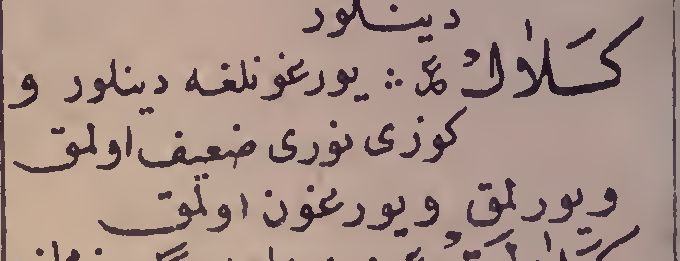 دينلور
كَلَالْ عر يورغونلغه دينلور و
كوزى نورى ضعيف اولمق
ويورلمق ويورغون اولمق